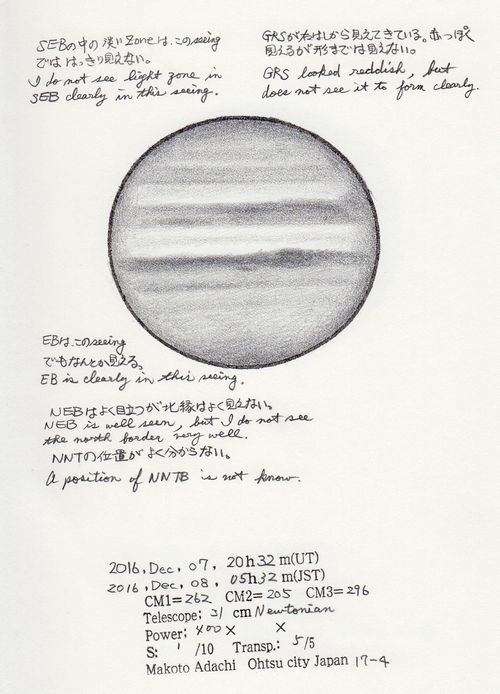 SEBの中の淡いzoneは、このseeing
でははっきり見えない。
I do not see light zone in
SEB clearly in this seeing.
GRSが右はしから見えてきている。赤っぽく
見えるが形までは見えない。
GRS looked reddish, but
does not see it to form clearly.
EBは、このseeing
でもなんとか見える。
EB is clearly in this seeing.
NEBはよく目立つが北縁はよく見えない。
NEB is well seen, but I do not see
the north border very well.
NNTの位置がよく分からない。
A position of NNTB is not know.
2016, Dec, 07, 20h32m(UT)
2016, Dec, 08, 05h32m(JST)
CM1=262 CM2=205 CM3=296
Telescope; 31 cm Newtonian
Power; 400× ×
S: 1 /10 Transp.: 5/5
Makoto Adachi Ohtsu city Japan 17-4